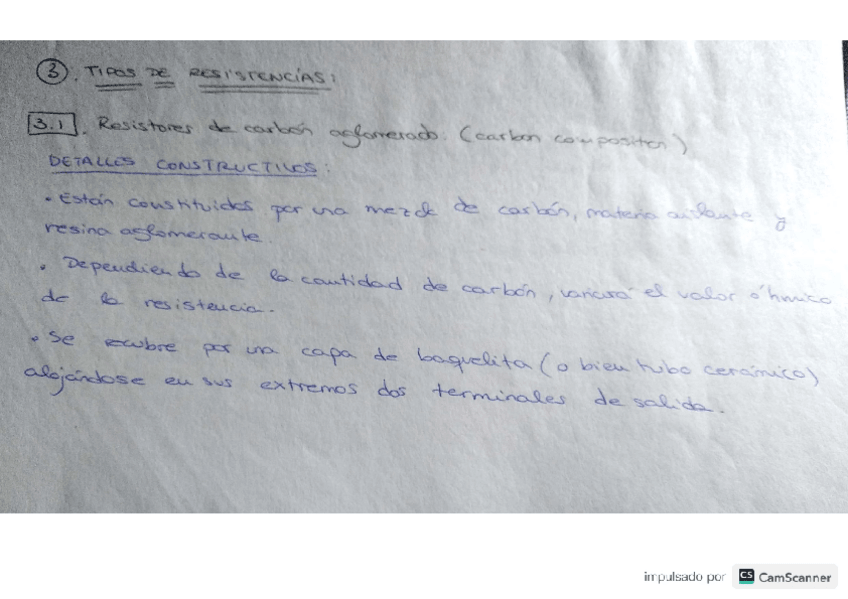 ③. TIPOS DE RESISTENCIAS:
3.1. Resistores de carbón aglomerado. (carbon composition)
DETALLES CONSTRUCTIVOS:
• Están constituidos por una mezcla de carbón, materia aislante y
resina aglomerante.
• Dependiendo de la cantidad de carbón, variará el valor óhmico
de la resistencia.
• Se recubre por una capa de baquelita (o bien tubo cerámico)
alojándose en sus extremos dos terminales de salida.
impulsado por CS CamScanner